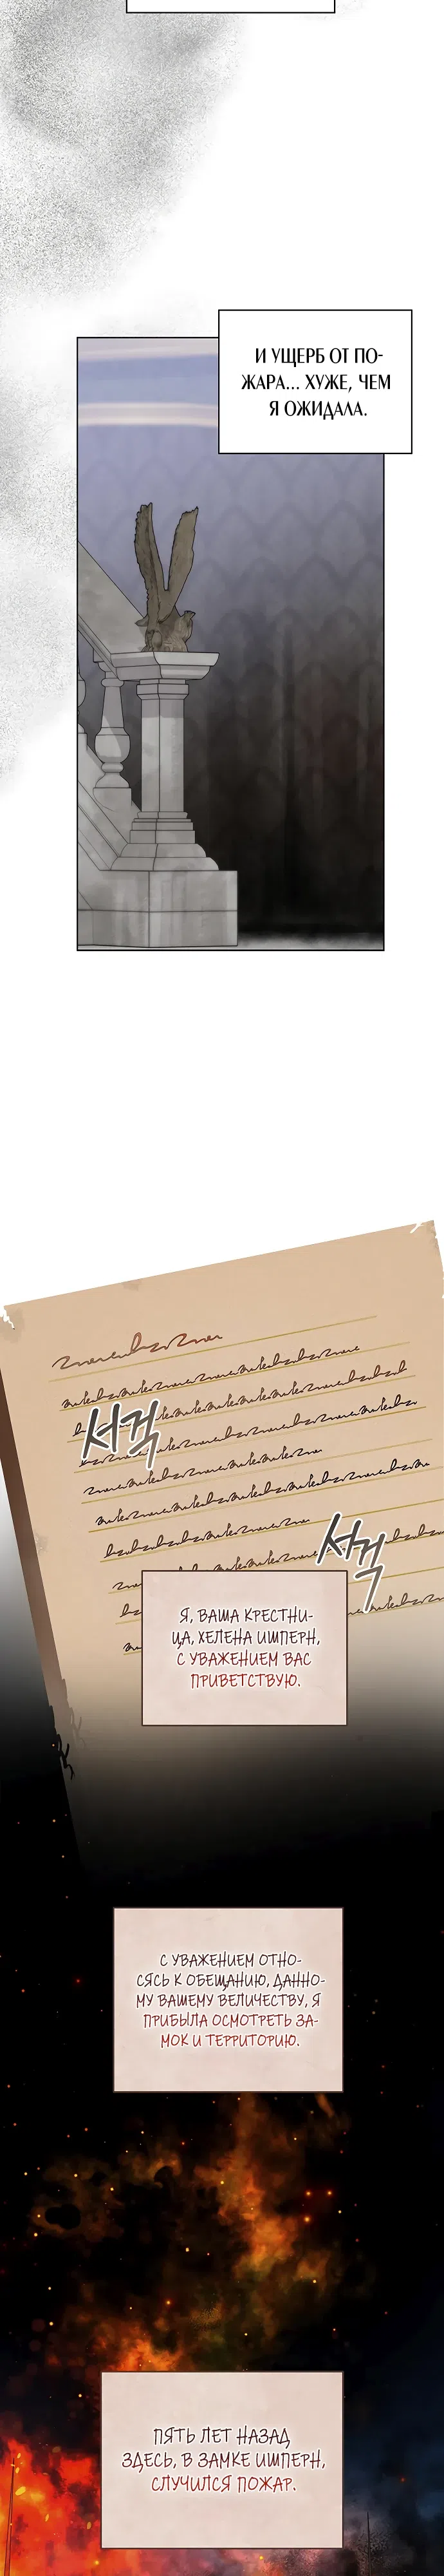 И УЩЕРБ ОТ ПО-
ЖАРА... ХУЖЕ, ЧЕМ
Я ОЖИДАЛА.
서걱
서걱
Я, ВАША КРЕСТНИ-
ЦА, ХЕЛЕНА ИМПЕРН,
С УВАЖЕНИЕМ ВАС
ПРИВЕТСТВУЮ.
С УВАЖЕНИЕМ ОТНО-
СЯСЬ К ОБЕЩАНИЮ, ДАННО-
МУ ВАШЕМУ ВЕЛИЧЕСТВУ, Я
ПРИБЫЛА ОСМОТРЕТЬ ЗА-
МОК И ТЕРРИТОРИЮ.
ПЯТЬ ЛЕТ НАЗАД
ЗДЕСЬ, В ЗАМКЕ ИМПЕРН,
СЛУЧИЛСЯ ПОЖАР.